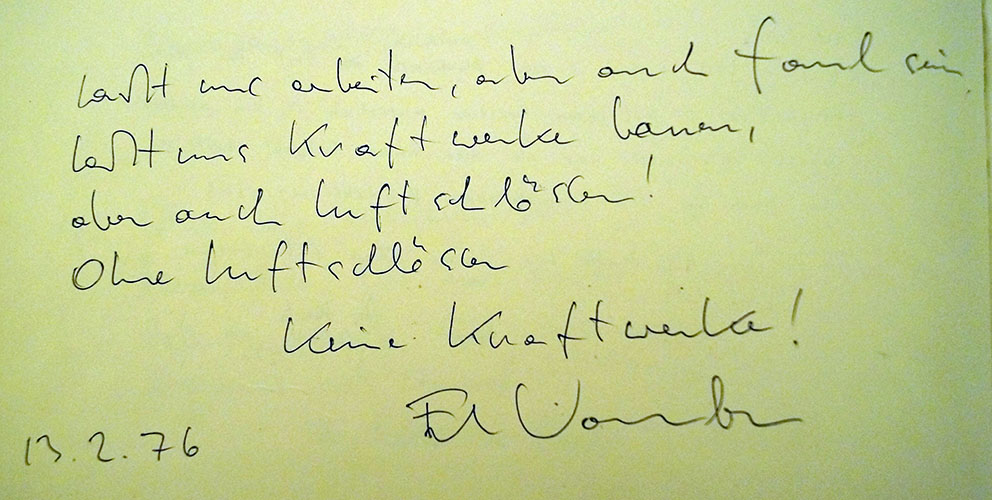 Laßt uns arbeiten, aber auch faul sein
laßt uns Kraftwerke bauen,
aber auch Luftschlösser!
Ohne Luftschlösser
Keine Kraftwerke!
13.2.76